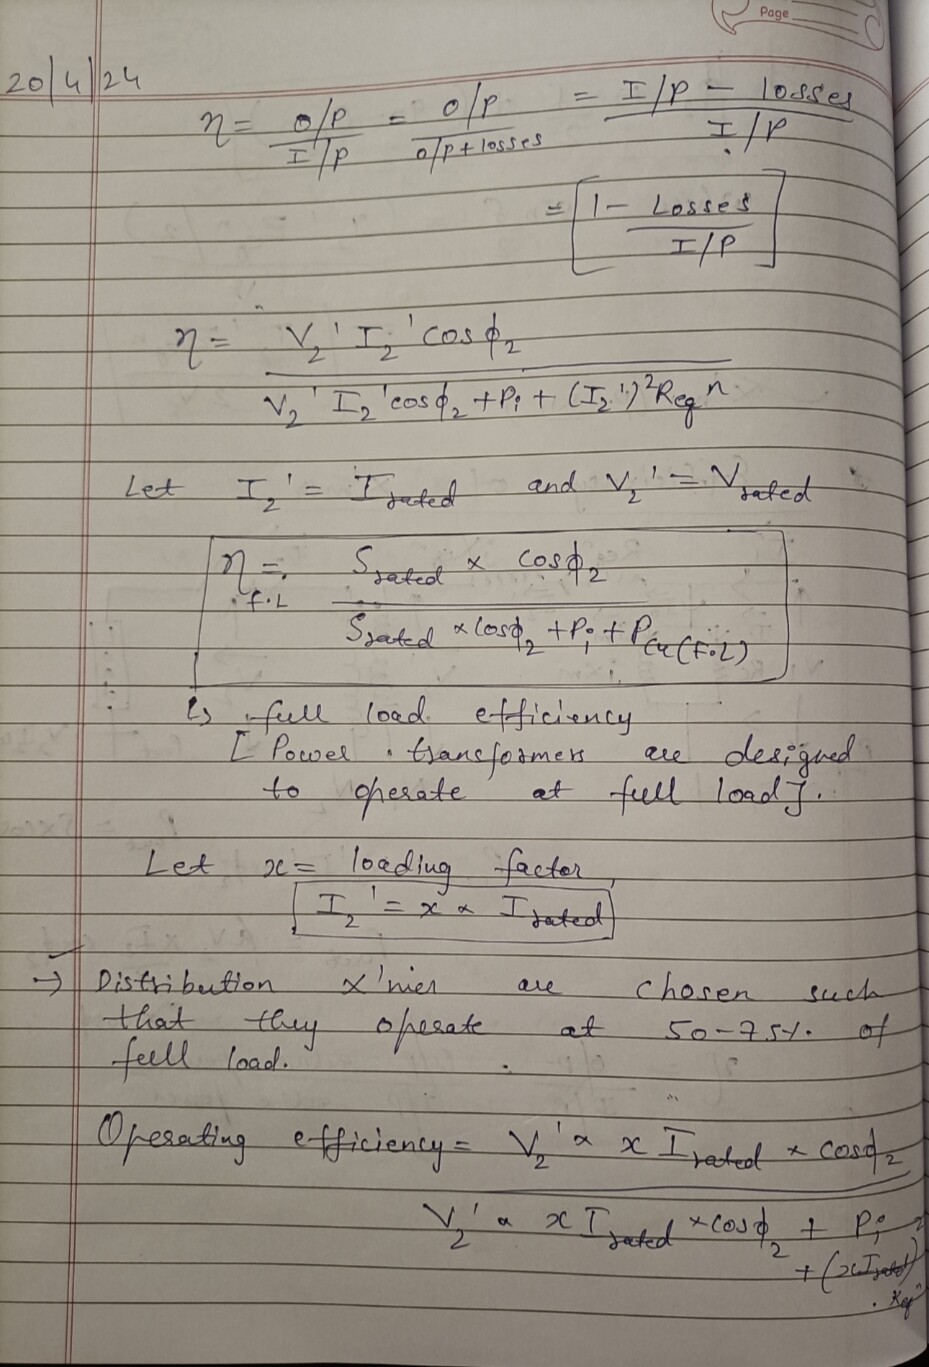 Page
20/4/24
η = O/P / I/P = O/P / O/P + losses = I/P - losses / I/P
= [1 - Losses / I/P]
η = V₂' I₂' cosϕ₂ / V₂' I₂' cosϕ₂ + Pi + (I₂')² Req"
Let I₂' = I rated and V₂' = V rated
η F.L = S rated × cosϕ₂ / S rated × cosϕ₂ + Pi + Pcu (F.L)
↳ full load efficiency
[ Power transformers are designed
to operate at full load ].
Let x = loading factor,
I₂' = x × I rated
→ Distribution x'mer are chosen such
that they operate at 50-75% of
full load.
Operating efficiency = V₂' × x I rated × cosϕ₂
V₂' × x I rated × cosϕ₂ + Pi
+ (x I rated)²
. Req"